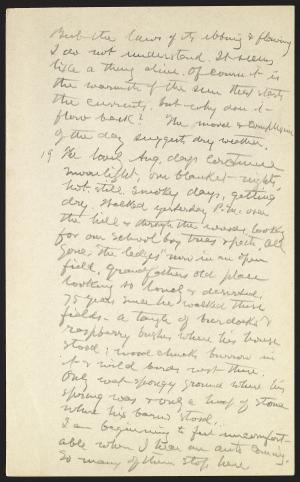 But the laws of its ebbing & flowing
I do not understand. It seems
like a thing alive. Of course it is
the warmth of the sun that starts
the currents, but why don't it
flow back? The mood & complexion
of the day suggests dry weather.
19 The lovely Aug. days continue
moonlight, one blanket nights,
hot, still smokey days, getting
dry. Walked yesterday P.M. over
the hill & through the woods, looking
for our school boy trees & paths, all
gone, the ledges now in an open
field, grandfathers old place
looking so lonely & deserted,
75 years since he walked these
fields. A tangle of burdocks &
raspberry bushes where his house
stood; wood chuck burrow in
it & wild birds nest there.
Only wet spongy ground where his
spring was & only a heap of stone
where his barn stood.
I am beginning to feel uncomfort-
able when I hear an auto coming.
So many of them stop here